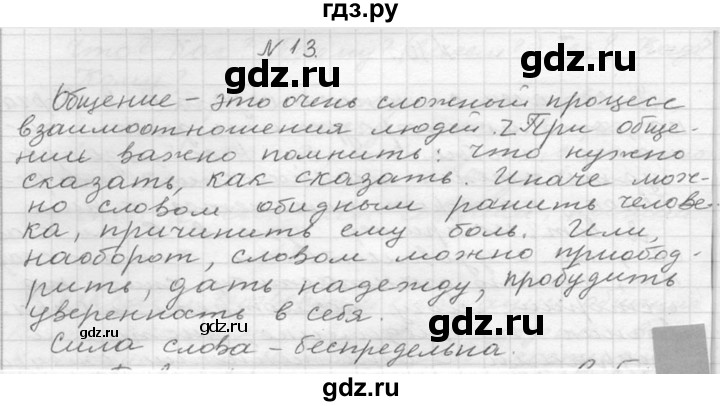 гдз.ру
N 13.
gdz.ru gdz.ru
Общение – это очень сложный процесс
взаимоотношения людей. Z При обще-
нии важно помнить: что нужно
сказать, как сказать. Иначе мож-
но словом обидным ранить челове-
ка, причинить ему боль. Или,
наоборот, словом можно приобод-
рить, дать надежду, пробудить
уверенность в себя.
gdz.ru gdz.ru gdz.ru
Сила слова – беспредельна.
gdz.ru
gdz.ru